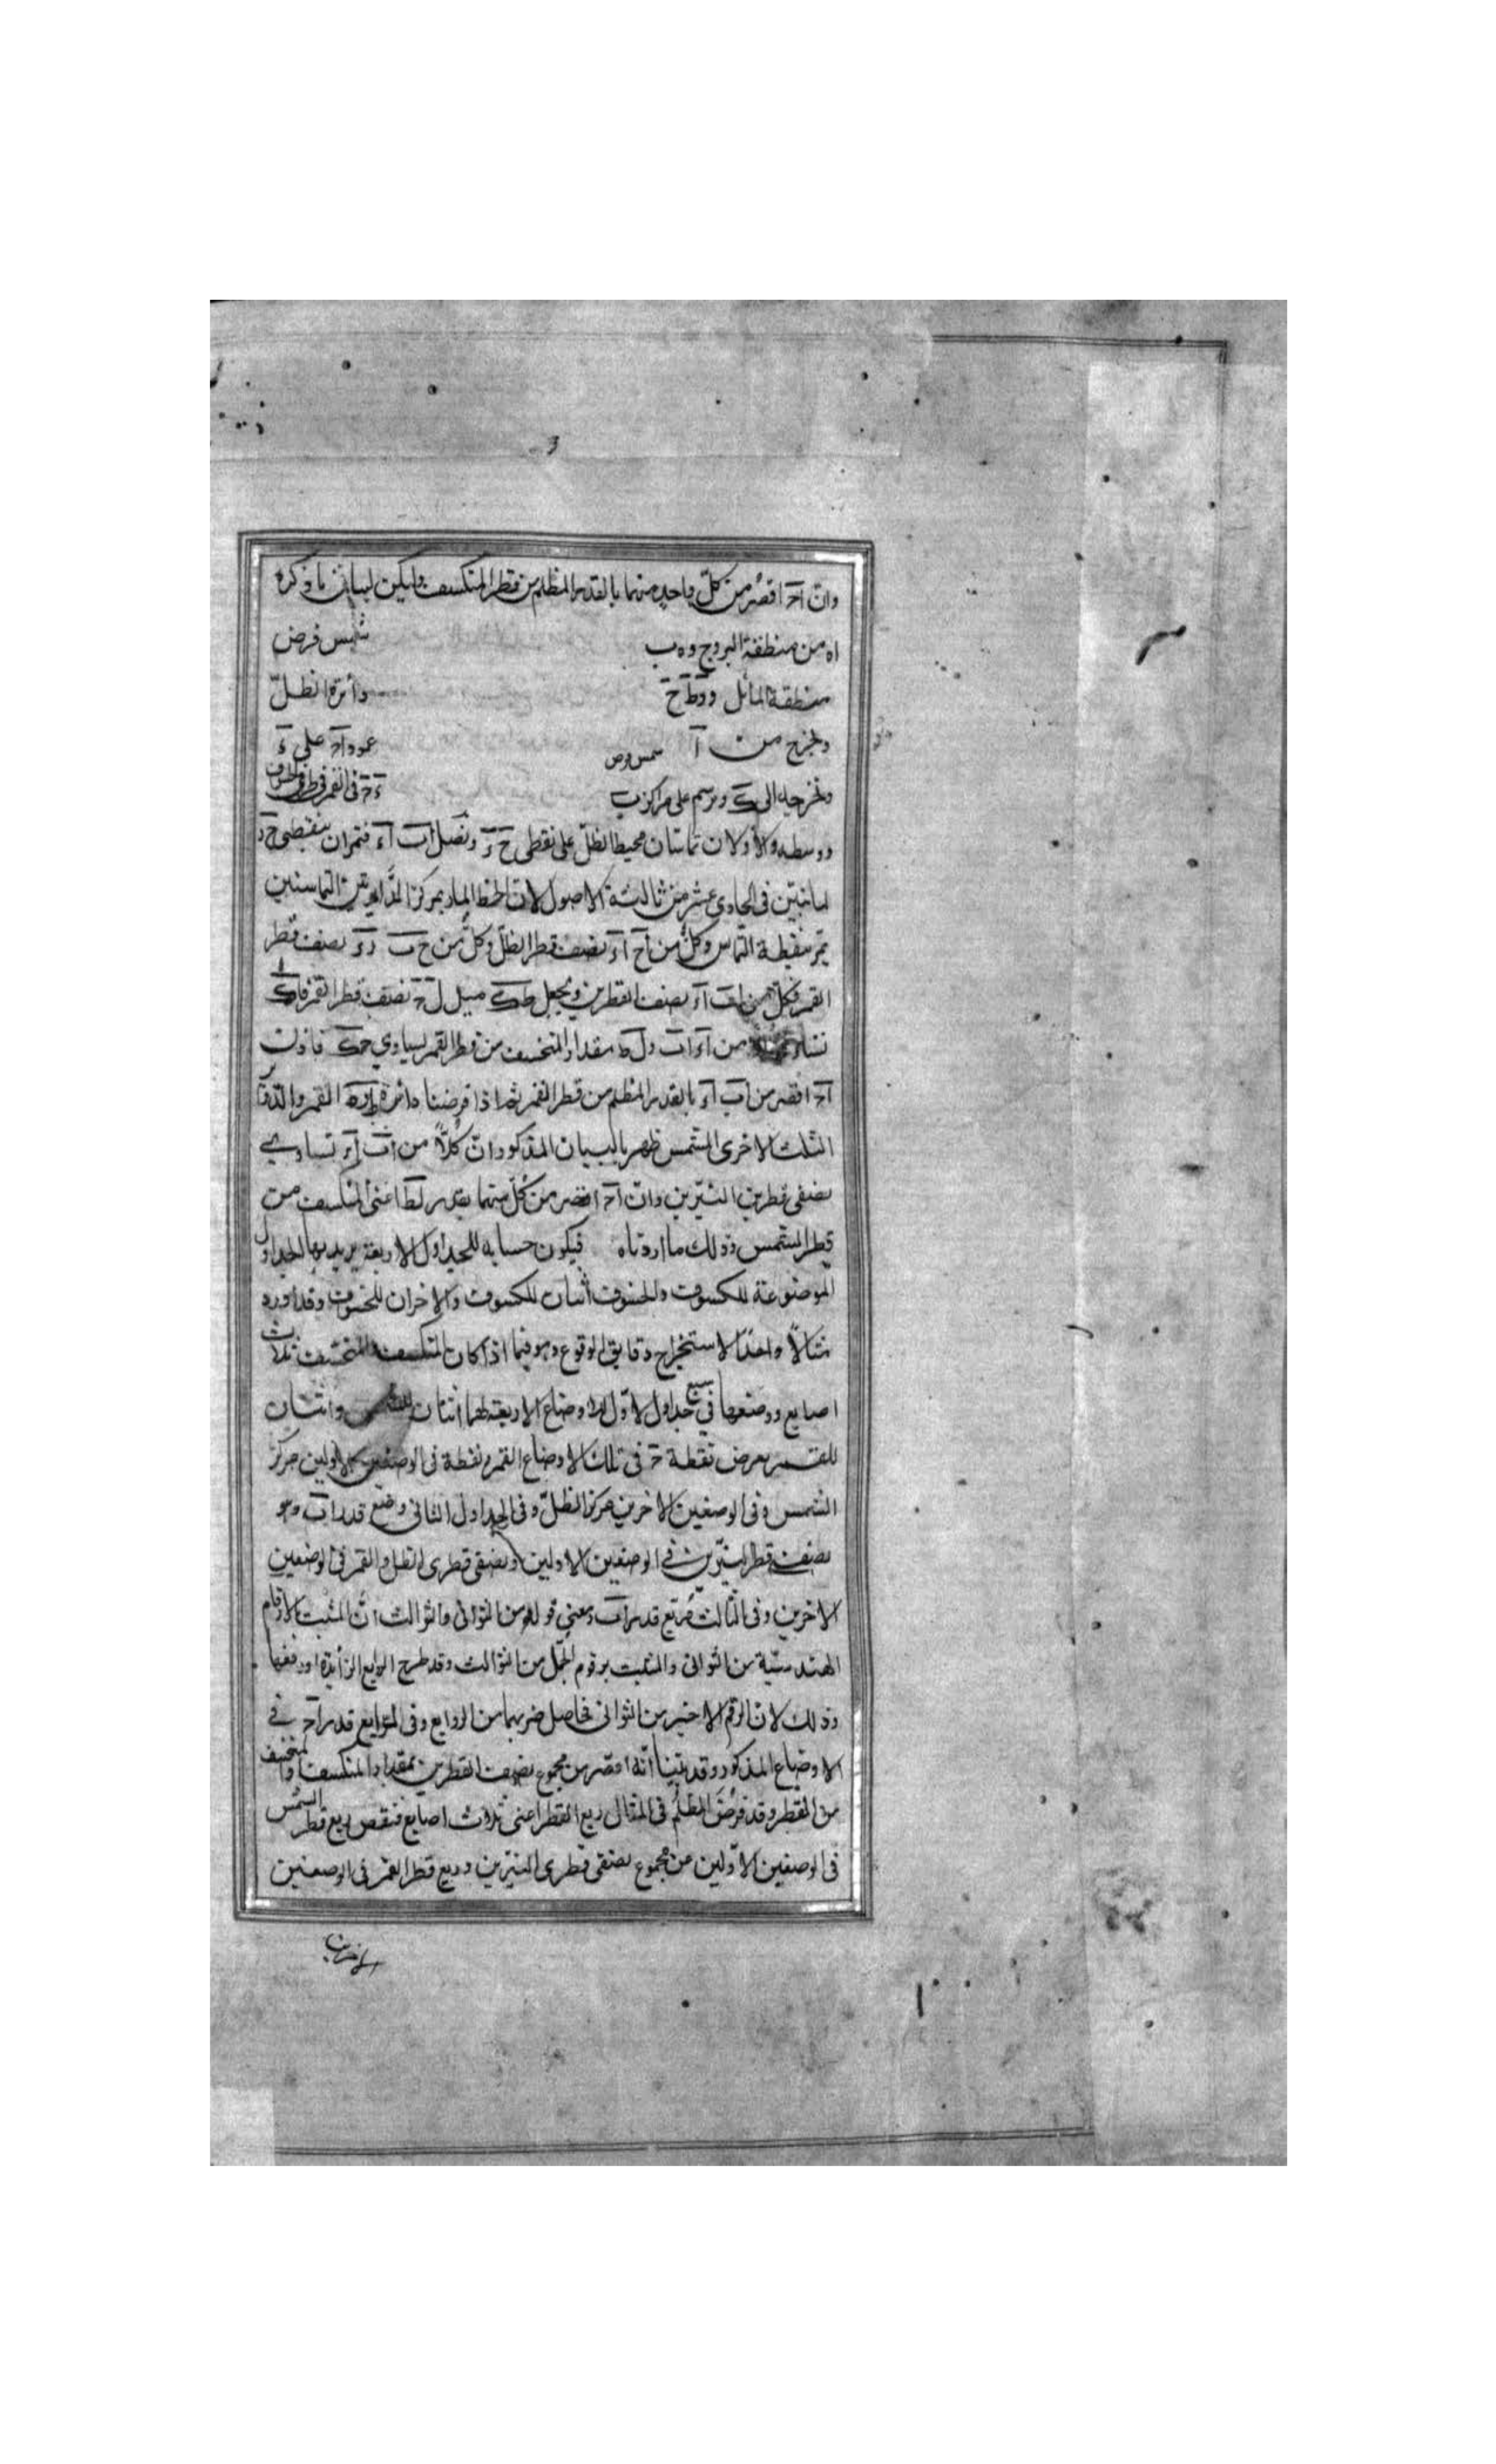 وانّ آحـ اقصر من كلّ واحد منهما بالقدر المظلم من قطر المنكسف وليكن لبيان ما ذكره
اه من منطقة البروج وه ب شمس فرض
منطقة المائل و دطح دائرة الظلّ
ونخرج من آ عمود آحـ على
ونخرجه الى ك ونرسم على مراكز ب
ووسطه والاولان تماسّان محيط الظلّ على نقطتى ح ز ونصل اب آء فتمران بنقطتى ح ز
لما تبيّن فى الحادى عشر من ثالثة الاصول لان الخط المار بمركز الدايرتين المتماستين
يمرّ بنقطة التماس وكلّ من آح آز نصف قطر الظلّ وكلّ من ح ب زء نصف قطر
القمر فكلّ من اب آء نصف القطرين ونجعل طك مثل ل حـ نصف قطر القمر فاك
من آء اب ول ط مقدار المنخسف من قطر القمر يساوي حك فاذن
آحـ اقصر من اب آء بالقدر المظلم من قطر القمر ثم اذا فرضنا دائرة القمر والدوائر
الثلث الاخرى الشمس ظهر بالبيان المذكور انّ كلّاً من اب آء تساوي
نصفى قطرين النيّرين وانّ آحـ اقصر من كلّ منهما بقدر لط اعنى المنكسف من
قطر الشمس وذلك ما اردناه فيكون حسابه للجداول الاربعة يريد بها الجداول
الموضوعة للكسوف والخسوف اثنان للكسوف والاخران للخسوف وقد اورد
مثالاً واحدًا لاستخراج دقايق الوقوع وهو فيما اذا كان المنكسف المنخسف ثلاث
اصابع ووضعها فى سبع جداول الاوّل الاوضاع الاربعة لهما اثنان للشمس واثنان
للقمر بعرض نقطة حـ فى تلك الاوضاع القمر ونقطة فى الوضعين الاولين مركز
الشمس وفى الوضعين الاخرين مركز الظلّ وفى الجداول الثانى وضع قدر اب وهو
نصف قطر النيّرين فى الوضعين الاولين ونصفى قطرى الظل والقمر فى الوضعين
الاخرين وفى الثالث مربّع قدر اب ومعنى قوله من الثوانى والثوالث انّ المثبت الارقام
الهندسيّة من الثوانى والمثبت برقوم الجمّل من الثوالث وقد طرح الروابع الزايدة او رفعها
وذلك لان الرقم الاخير من الثوانى فحاصل ضربهما من الروابع وفى الرابع قدر آحـ فى
الاوضاع المذكور وقد بيّنا انّه اقصر من مجموع نصف القطرين بمقدار المنكسف والمنخسف
من القطر وقد فرض المظلم فى المثال ربع القطر اعنى ثلاث اصابع فنقص ربع قطر الشمس
فى الوضعين الاوّلين من مجموع نصفى قطرى النيّرين وربع قطر القمر فى الوضعين
الاخرين